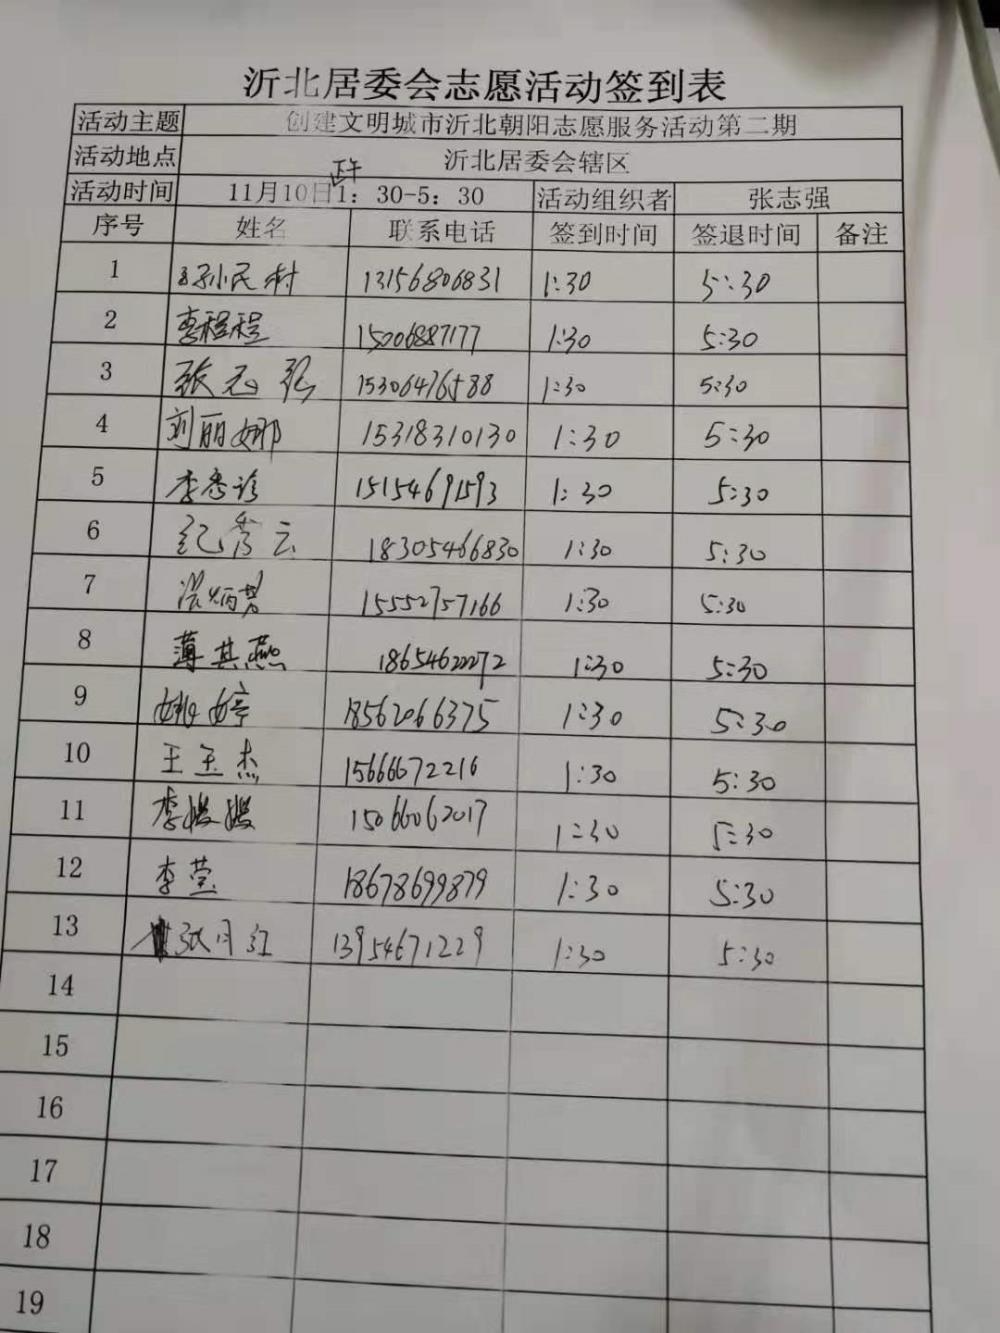 沂北居委会志愿活动签到表
活动主题 创建文明城市沂北朝阳志愿服务活动第二期
活动地点 沂北居委会辖区
活动时间 11月10日 下午 1：30-5：30 活动组织者 张志强
序号 姓名 联系电话 签到时间 签退时间 备注
1 孙民村 13156806831 1:30 5:30
2 程程 15006887177 1:30 5:30
3 张志强 15306476588 1:30 5:30
4 刘丽娜 15318310130 1:30 5:30
5 李秀珍 15154691593 1:30 5:30
6 纪秀云 18305466830 1:30 5:30
7 15552757166 1:30 5:30
8 薄其燕 18654622272 1:30 5:30
9 姚婷 18562066375 1:30 5:30
10 王玉杰 15666672216 1:30 5:30
11 李嫂嫂 15066062017 1:30 5:30
12 李莹 18678699879 1:30 5:30
13 张月红 13954671229 1:30 5:30
14
15
16
17
18
19